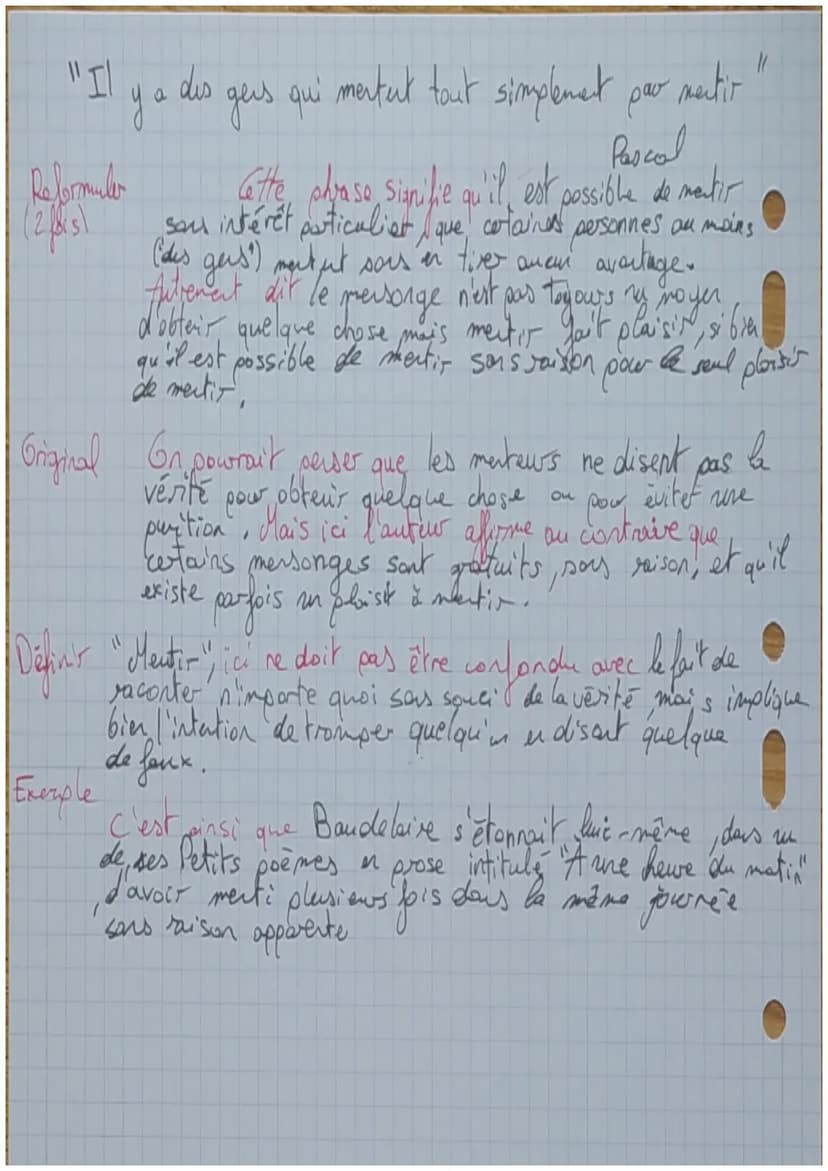 "Il y a des gens qui mentent tout simplement pour mentir"
Pascal
Reformuler Cette phrase signifie qu'il est possible de mentir
(2 fois) sans intérêt particulier, que certaines personnes au moins
("des gens") mentent sans en tirer aucun avantage.
Autrement dit le mensonge n'est pas toujours un moyen
d'obtenir quelque chose mais mentir fait plaisir, si bien
qu'il est possible de mentir sans raison pour le seul plaisir
de mentir.
Original On pourrait penser que les menteurs ne disent pas la
vérité pour obtenir quelque chose ou pour éviter une
punition. Mais ici l'auteur affirme au contraire que
certains mensonges sont gratuits, sans raison, et qu'il
existe parfois un plaisir à mentir.
Définir "Mentir", ici ne doit pas être confondu avec le fait de
raconter n'importe quoi sans souci de la vérité mais implique
bien l'intention de tromper quelqu'un en disant quelque
de faux.
Exemple
C'est ainsi que Baudelaire s'étonnait lui-même, dans un
de ses Petits poèmes en prose intitulé "À une heure du matin"
, d'avoir menti plusieurs fois dans la même journée
sans raison apparente